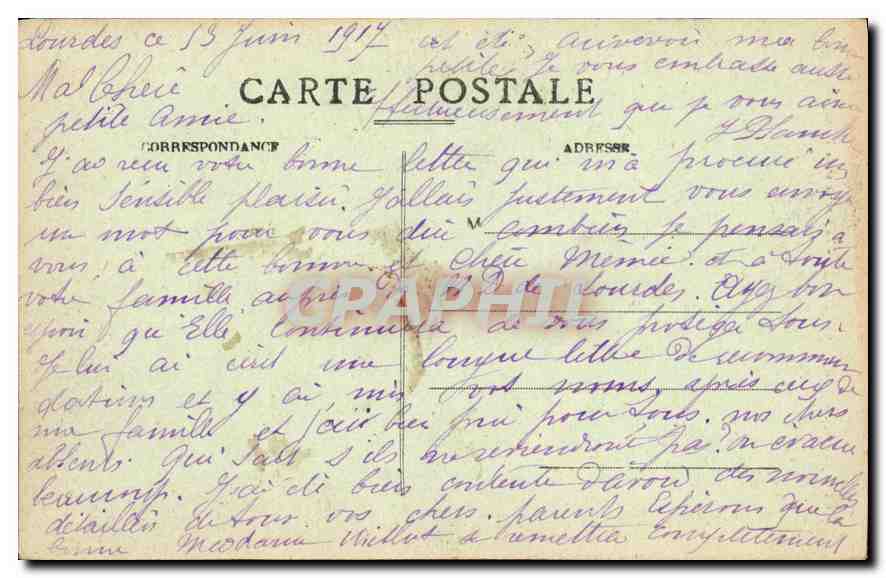 Lourdes ce 13 Juin 1917
Ma Chère
petite Amie.
CARTE POSTALE
CORRESPONDANCE
ADRESSE
J'ai reçu votre bonne lettre qui m'a procuré un
bien sensible plaisir. J'allais justement vous envoyer
un mot pour vous dire combien je pensais à
vous, à cette bonne et chère Mémée et à toute
votre famille auprès de N D de Lourdes. Ayez bon
espoir qu'Elle continuera de vous protéger tous.
Je lui ai écrit une longue lettre de recomman
dations et y ai mis vos noms, après ceux de
ma famille et j'ai bien prié pour tous nos chers
absents. Qui sait s'ils ne reviendront pas? on évacue
beaucoup. J'ai été bien contente d'avoir des nouvelles
détaillées de tous vos chers parents Espérons que la
bonne Madame se remettra complètement
cet été, au revoir ma bonne
petite, Je vous embrasse aussi
affectueusement que je vous aime
GRAPHIL